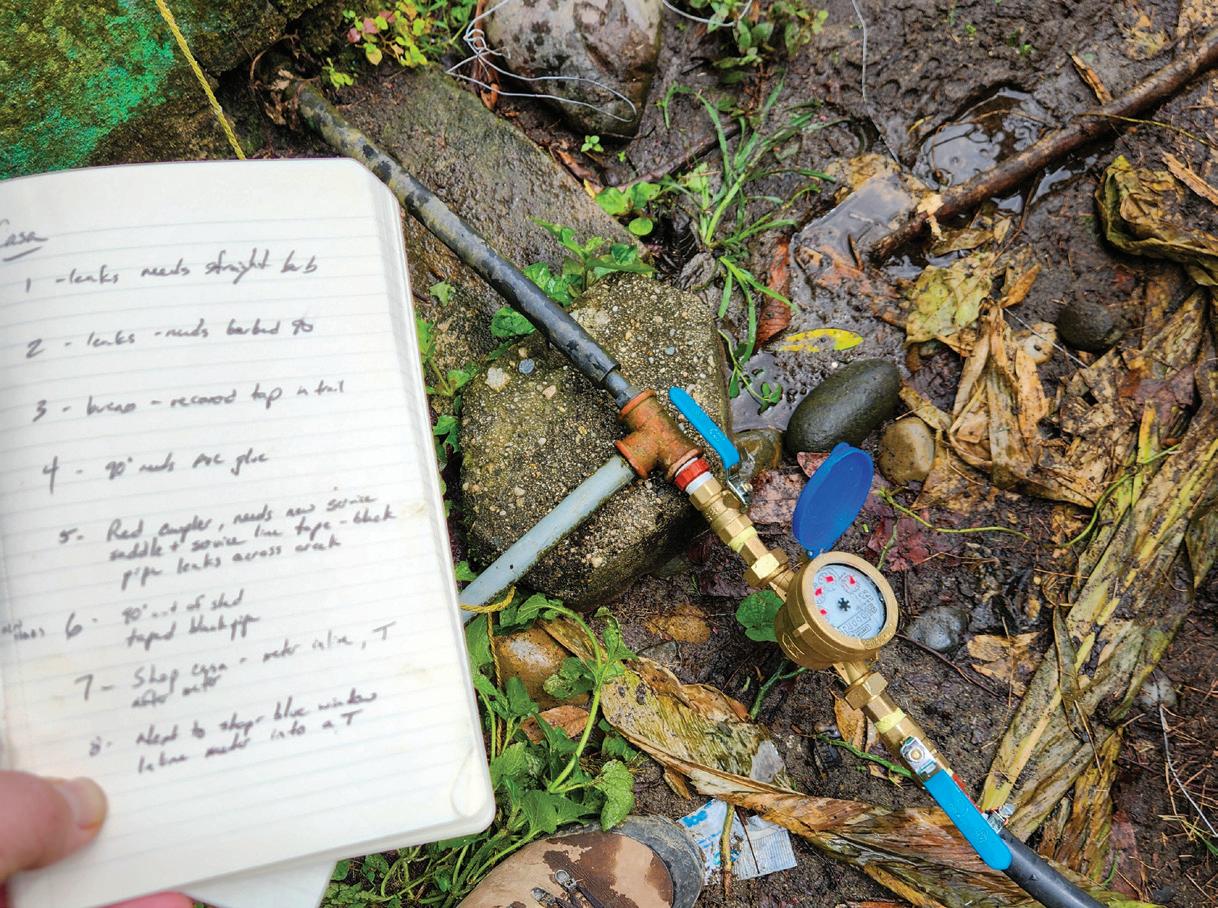 Casa
1 - leaks needs straight barb
2 - leaks - needs barbed 90
3 - bueno - record tap in trail
4 - 90° needs PVC glue
5 - Red coupler, needs new service
saddle + service line tape - black
pipe leaks across creek
6 - 90° out of shed
taped black pipe
7 - Shop casa - meter inline, T
after meter
8 - Next to shop - blue window
Inline meter into a T